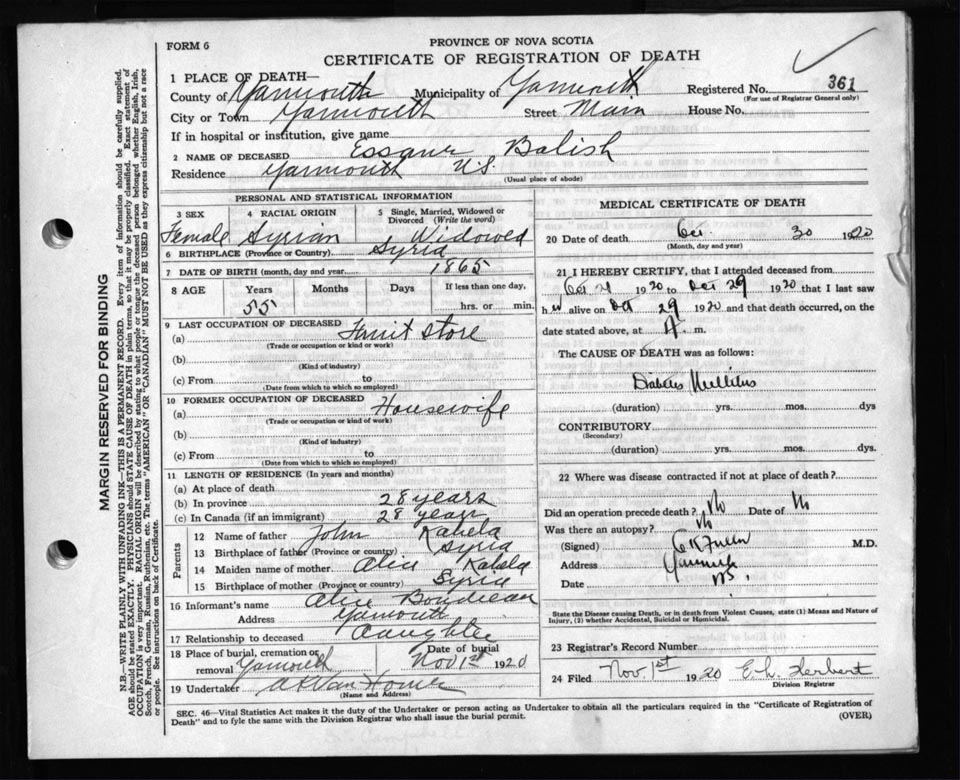 FORM 6
PROVINCE OF NOVA SCOTIA
CERTIFICATE OF REGISTRATION OF DEATH
1 PLACE OF DEATH—
County of Yarmouth Municipality of Yarmouth Registered No. 361
(For use of Registrar General only)
City or Town Yarmouth Street Main House No.
If in hospital or institution, give name
2 NAME OF DECEASED Balish
Residence Yarmouth
(Usual place of abode)
PERSONAL AND STATISTICAL INFORMATION
3 SEX
Female
4 RACIAL ORIGIN
Syrian
5 Single, Married, Widowed or Divorced (Write the word)
Widowed
6 BIRTHPLACE (Province or Country) Syria
7 DATE OF BIRTH (month, day and year) 1865
8 AGE Years Months Days If less than one day,
55 hrs. or min.
9 LAST OCCUPATION OF DECEASED
(a) Fruit Store
(Trade or occupation or kind or work)
(b)
(Kind of industry)
(c) From to
(Date from which to which so employed)
10 FORMER OCCUPATION OF DECEASED
(a) Housewife
(Trade or occupation or kind or work)
(b)
(Kind of industry)
(c) From to
(Date from which to which so employed)
11 LENGTH OF RESIDENCE (In years and months)
(a) At place of death
(b) In province 28 years
(c) In Canada (if an immigrant) 28 years
Parents
12 Name of father John
13 Birthplace of father (Province or country) Syria
14 Maiden name of mother Alice
15 Birthplace of mother (Province or country) Syria
16 Informant's name Alice Boudreau
Address Yarmouth
17 Relationship to deceased Daughter
18 Place of burial, cremation or removal Yarmouth
Date of burial Nov 1st 1920
19 Undertaker Van Horne
(Name and Address)
MEDICAL CERTIFICATE OF DEATH
20 Date of death Oct. 30 1920
(Month, day and year)
21 I HEREBY CERTIFY, that I attended deceased from
Oct 21 1920 to Oct 29 1920 that I last saw
h er alive on Oct 29 1920 and that death occurred, on the
date stated above, at A. m.
The CAUSE OF DEATH was as follows:
Diabetes Mellitus
(duration) yrs. mos. dys
CONTRIBUTORY
(Secondary)
(duration) yrs. mos. dys
22 Where was disease contracted if not at place of death?
Did an operation precede death? No Date of No
Was there an autopsy? No
(Signed) Fuller M.D.
Address Yarmouth
N.S.
Date
State the Disease causing Death, or in death from Violent Causes, state (1) Means and Nature of
Injury, (2) whether Accidental, Suicidal or Homicidal.
23 Registrar's Record Number
24 Filed Nov. 1st 1920 E. L. Herbert
Division Registrar
SEC. 46—Vital Statistics Act makes it the duty of the Undertaker or person acting as Undertaker to obtain all the particulars required in the "Certificate of Registration of
Death" and to fyle the same with the Division Registrar who shall issue the burial permit.
(OVER)
MARGIN RESERVED FOR BINDING
N.B.—WRITE PLAINLY WITH UNFADING INK—THIS IS A PERMANENT RECORD. Every item of information should be carefully supplied.
AGE should be stated EXACTLY. PHYSICIANS should STATE CAUSE OF DEATH in plain terms, so that it may be properly classified. Exact statement of
OCCUPATION is very important. RACIAL ORIGIN will be described by stating to what people or tongue the deceased person belonged whether English, Irish,
Scotch, French, German, Russian, Ruthenian, etc. The terms "AMERICAN" OR "CANADIAN" MUST NOT BE USED as they express citizenship but not a race
or people. See instructions on back of Certificate.